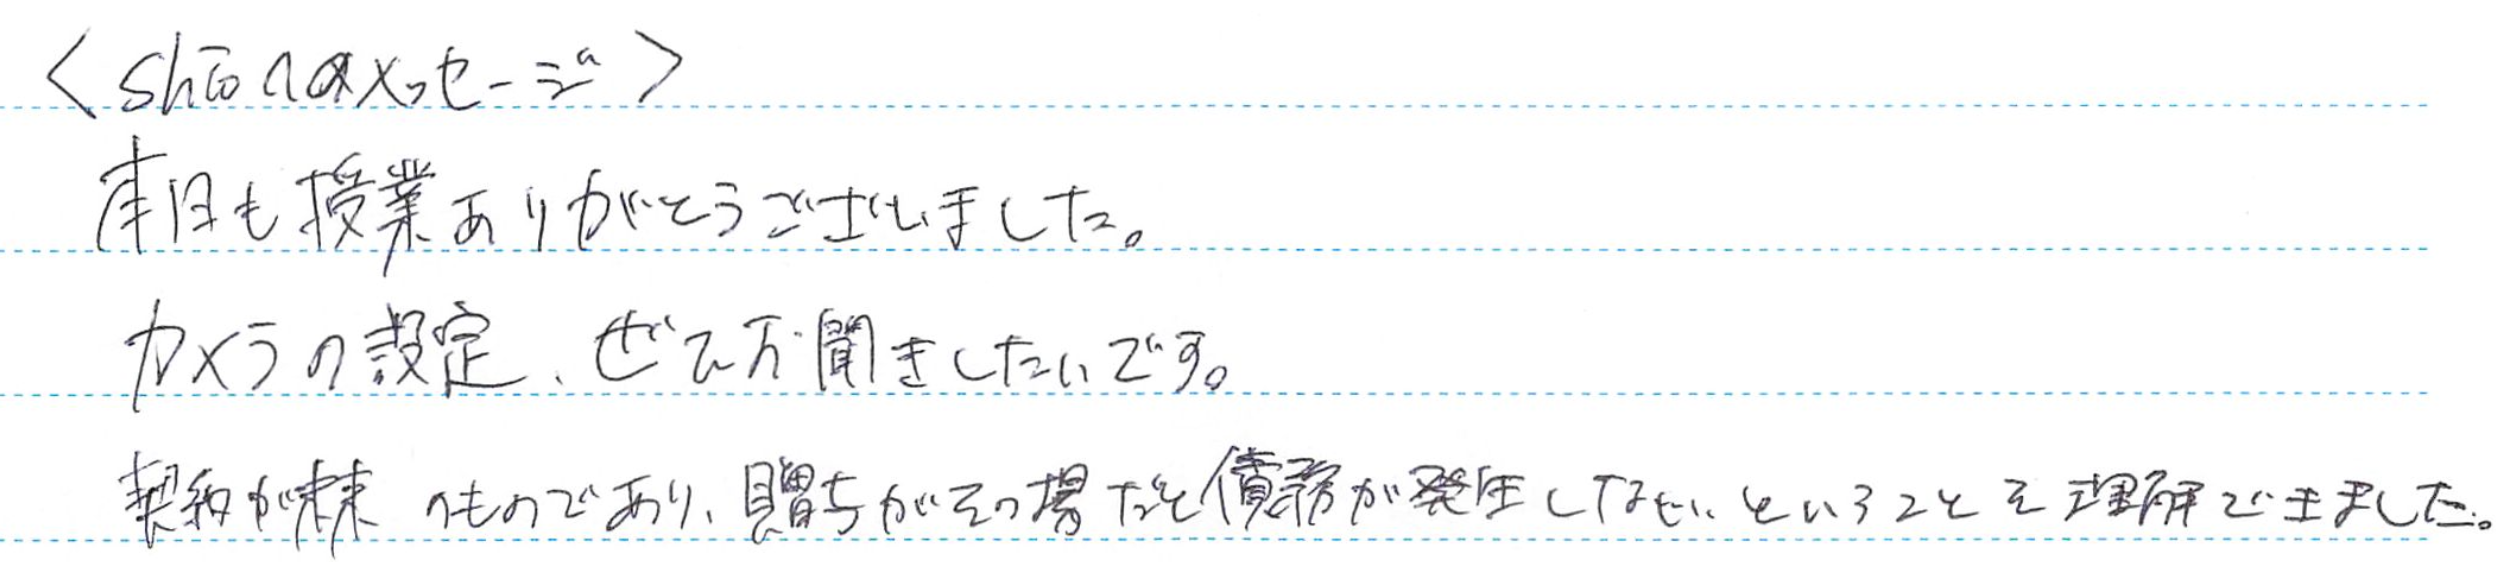 <shionのメッセージ>
本日も授業ありがとうございました。
カメラの設定、ぜひお聞きしたいです。
契約が未来のものであり、贈与がその場だと債務が発生しないということを理解できました。